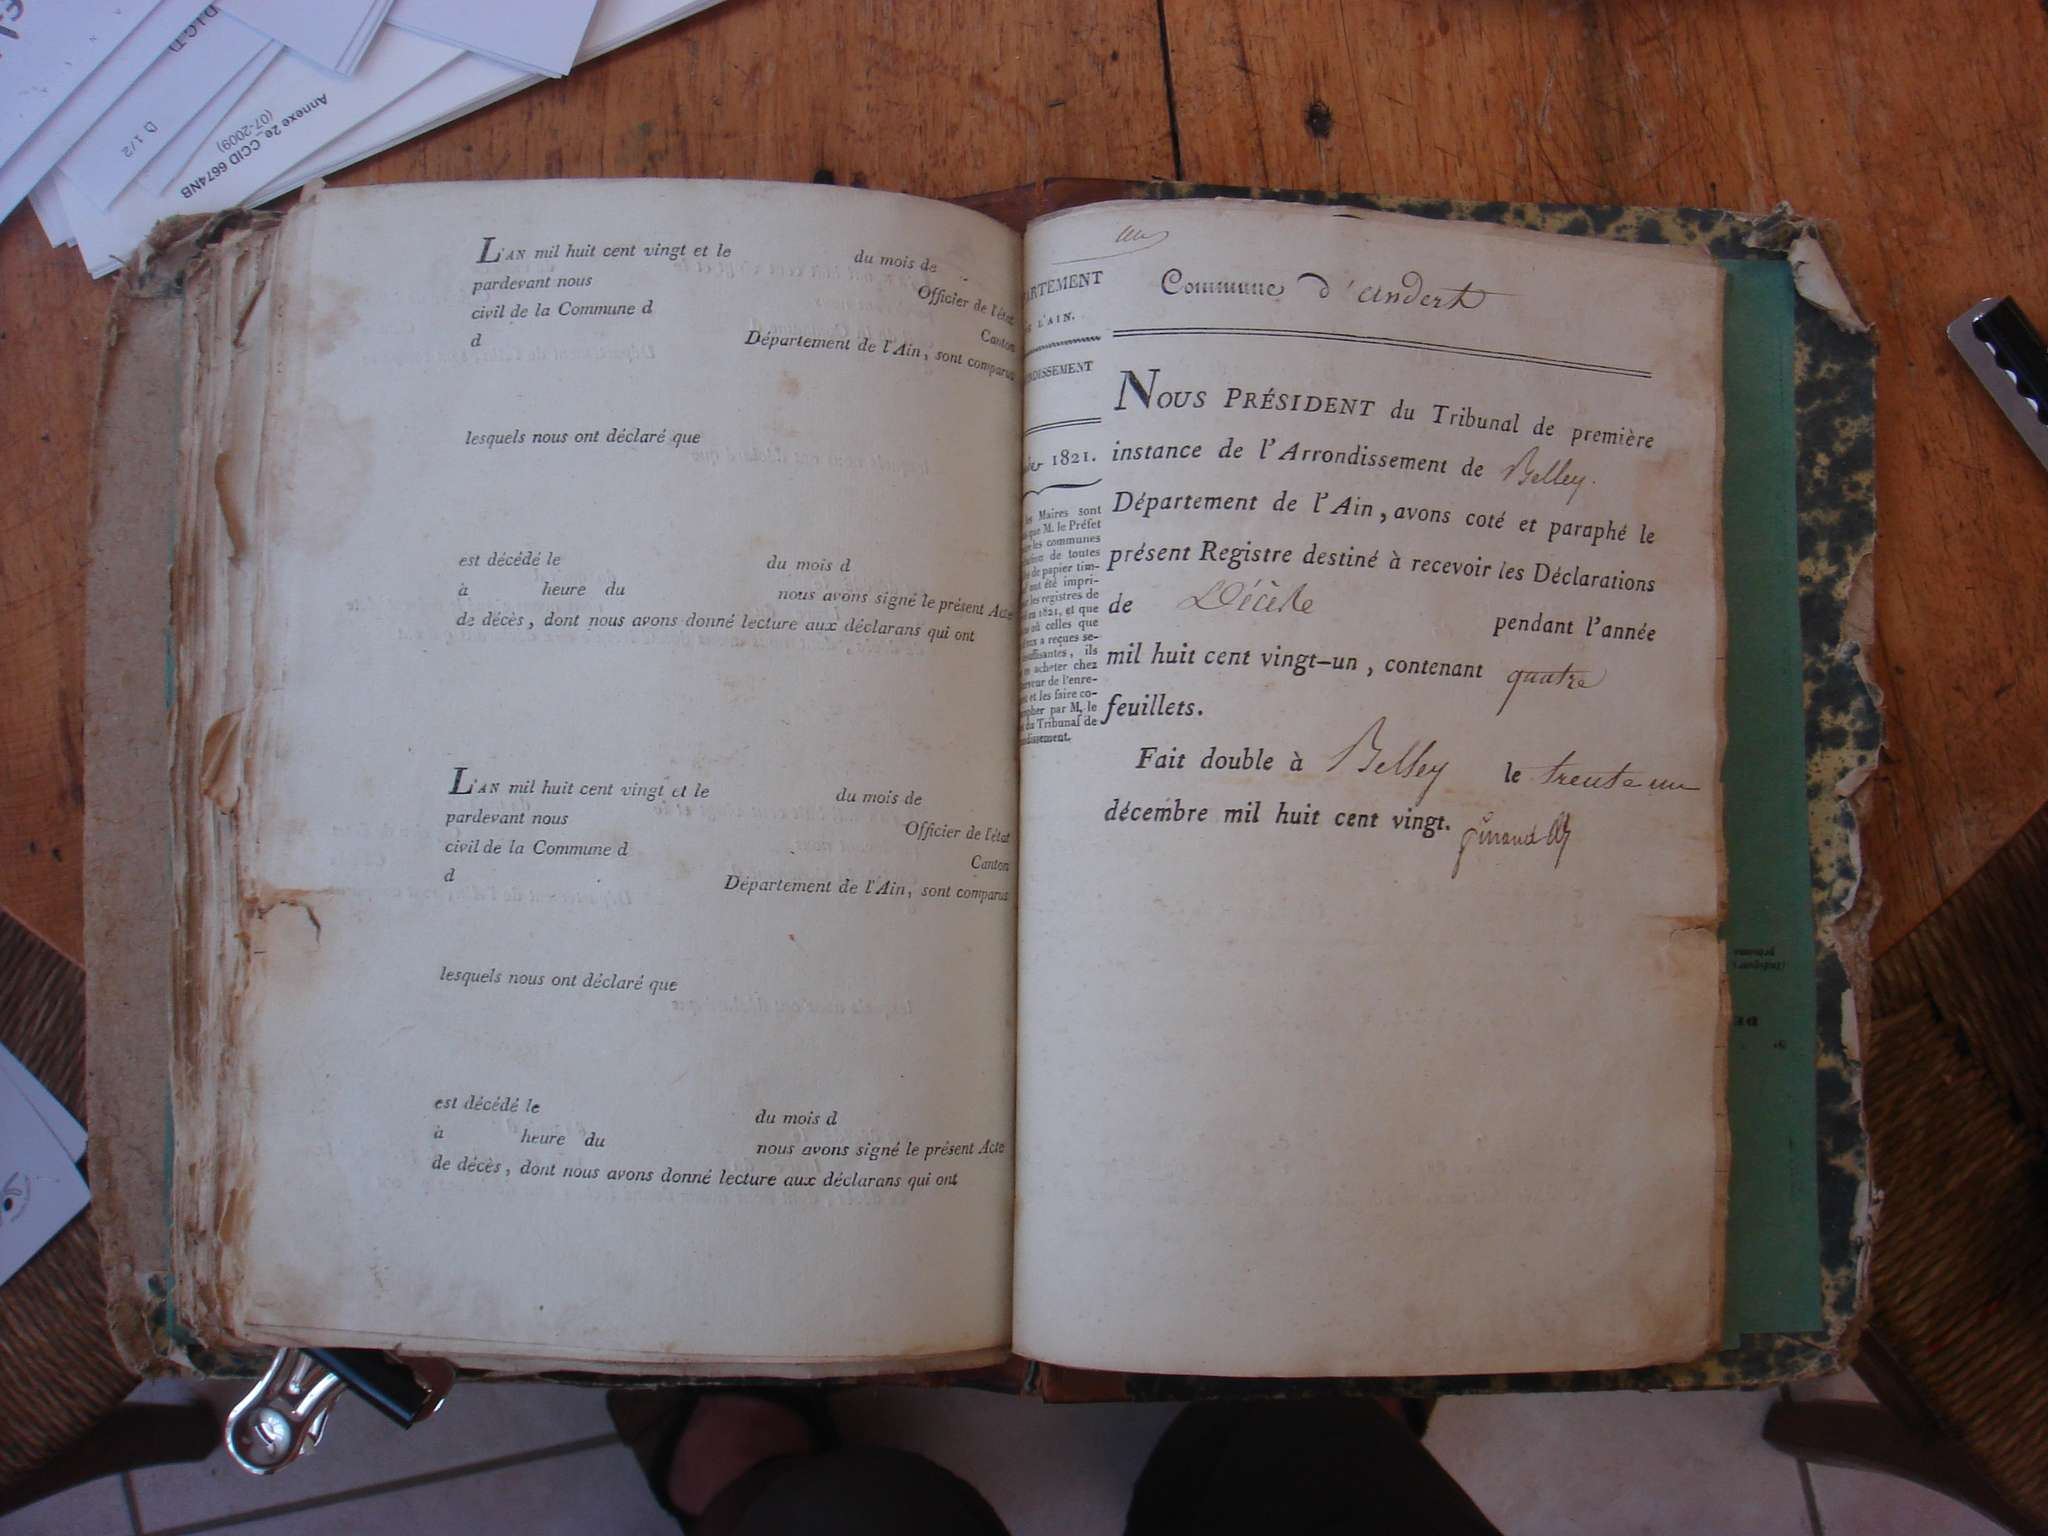 Annexe 2e_CCID 6674NB
(07-2009)
D 1/2
L'AN mil huit cent vingt et le du mois de
pardevant nous Officier de l'état
civil de la Commune d Canton
d Département de l'Ain, sont comparus
lesquels nous ont déclaré que
est décédé le du mois d
à heure du nous avons signé le présent Acte
de décès, dont nous avons donné lecture aux déclarans qui ont
L'AN mil huit cent vingt et le du mois de
pardevant nous Officier de l'état
civil de la Commune d Canton
d Département de l'Ain, sont comparus
lesquels nous ont déclaré que
est décédé le du mois d
à heure du nous avons signé le présent Acte
de décès, dont nous avons donné lecture aux déclarans qui ont
ARTEMENT
L'AIN.
NDISSEMENT
1821.
les Maires sont
que M. le Préfet
les communes
de toutes
de papier tim-
ont été impri-
les registres de
en 1821, et que
où celles que
a reçues se-
suffisantes, ils
en acheter chez
de l'enre-
et les faire co-
parapher par M. le
du Tribunal de
ndissement.
Commune d'Andert
NOUS PRÉSIDENT du Tribunal de première
instance de l'Arrondissement de Belley.
Département de l'Ain, avons coté et paraphé le
présent Registre destiné à recevoir les Déclarations
de Décès pendant l'année
mil huit cent vingt-un, contenant quatre
feuillets.
Fait double à Belley le trente un
décembre mil huit cent vingt.
DE